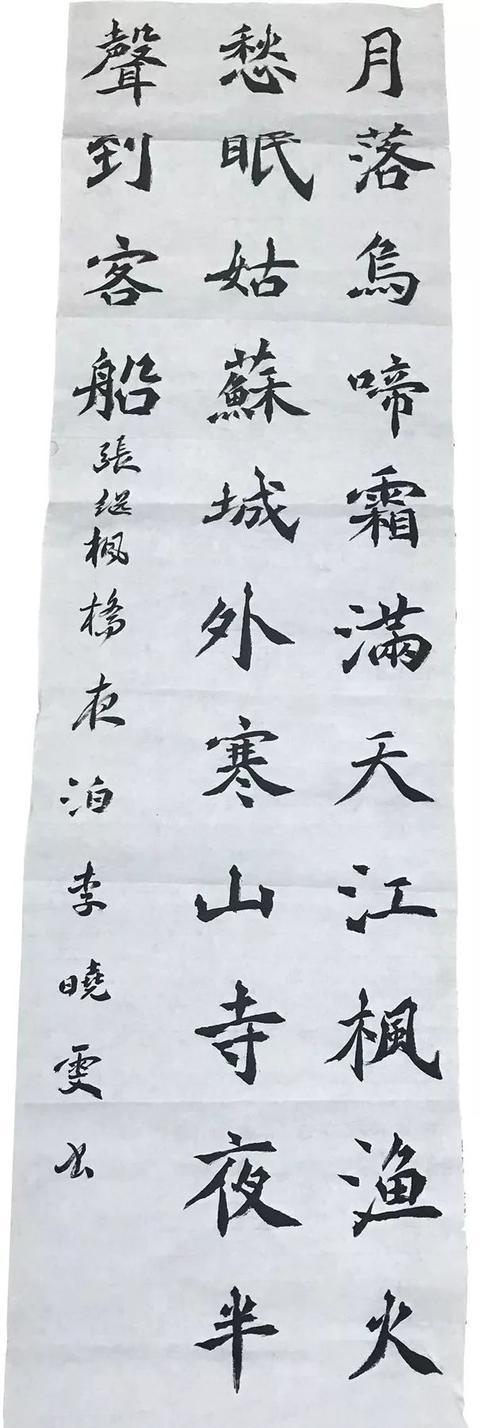 月落烏啼霜滿天江楓渔火
愁眠姑蘇城外寒山寺夜半
聲到客船
張继楓橋夜泊李曉雯书